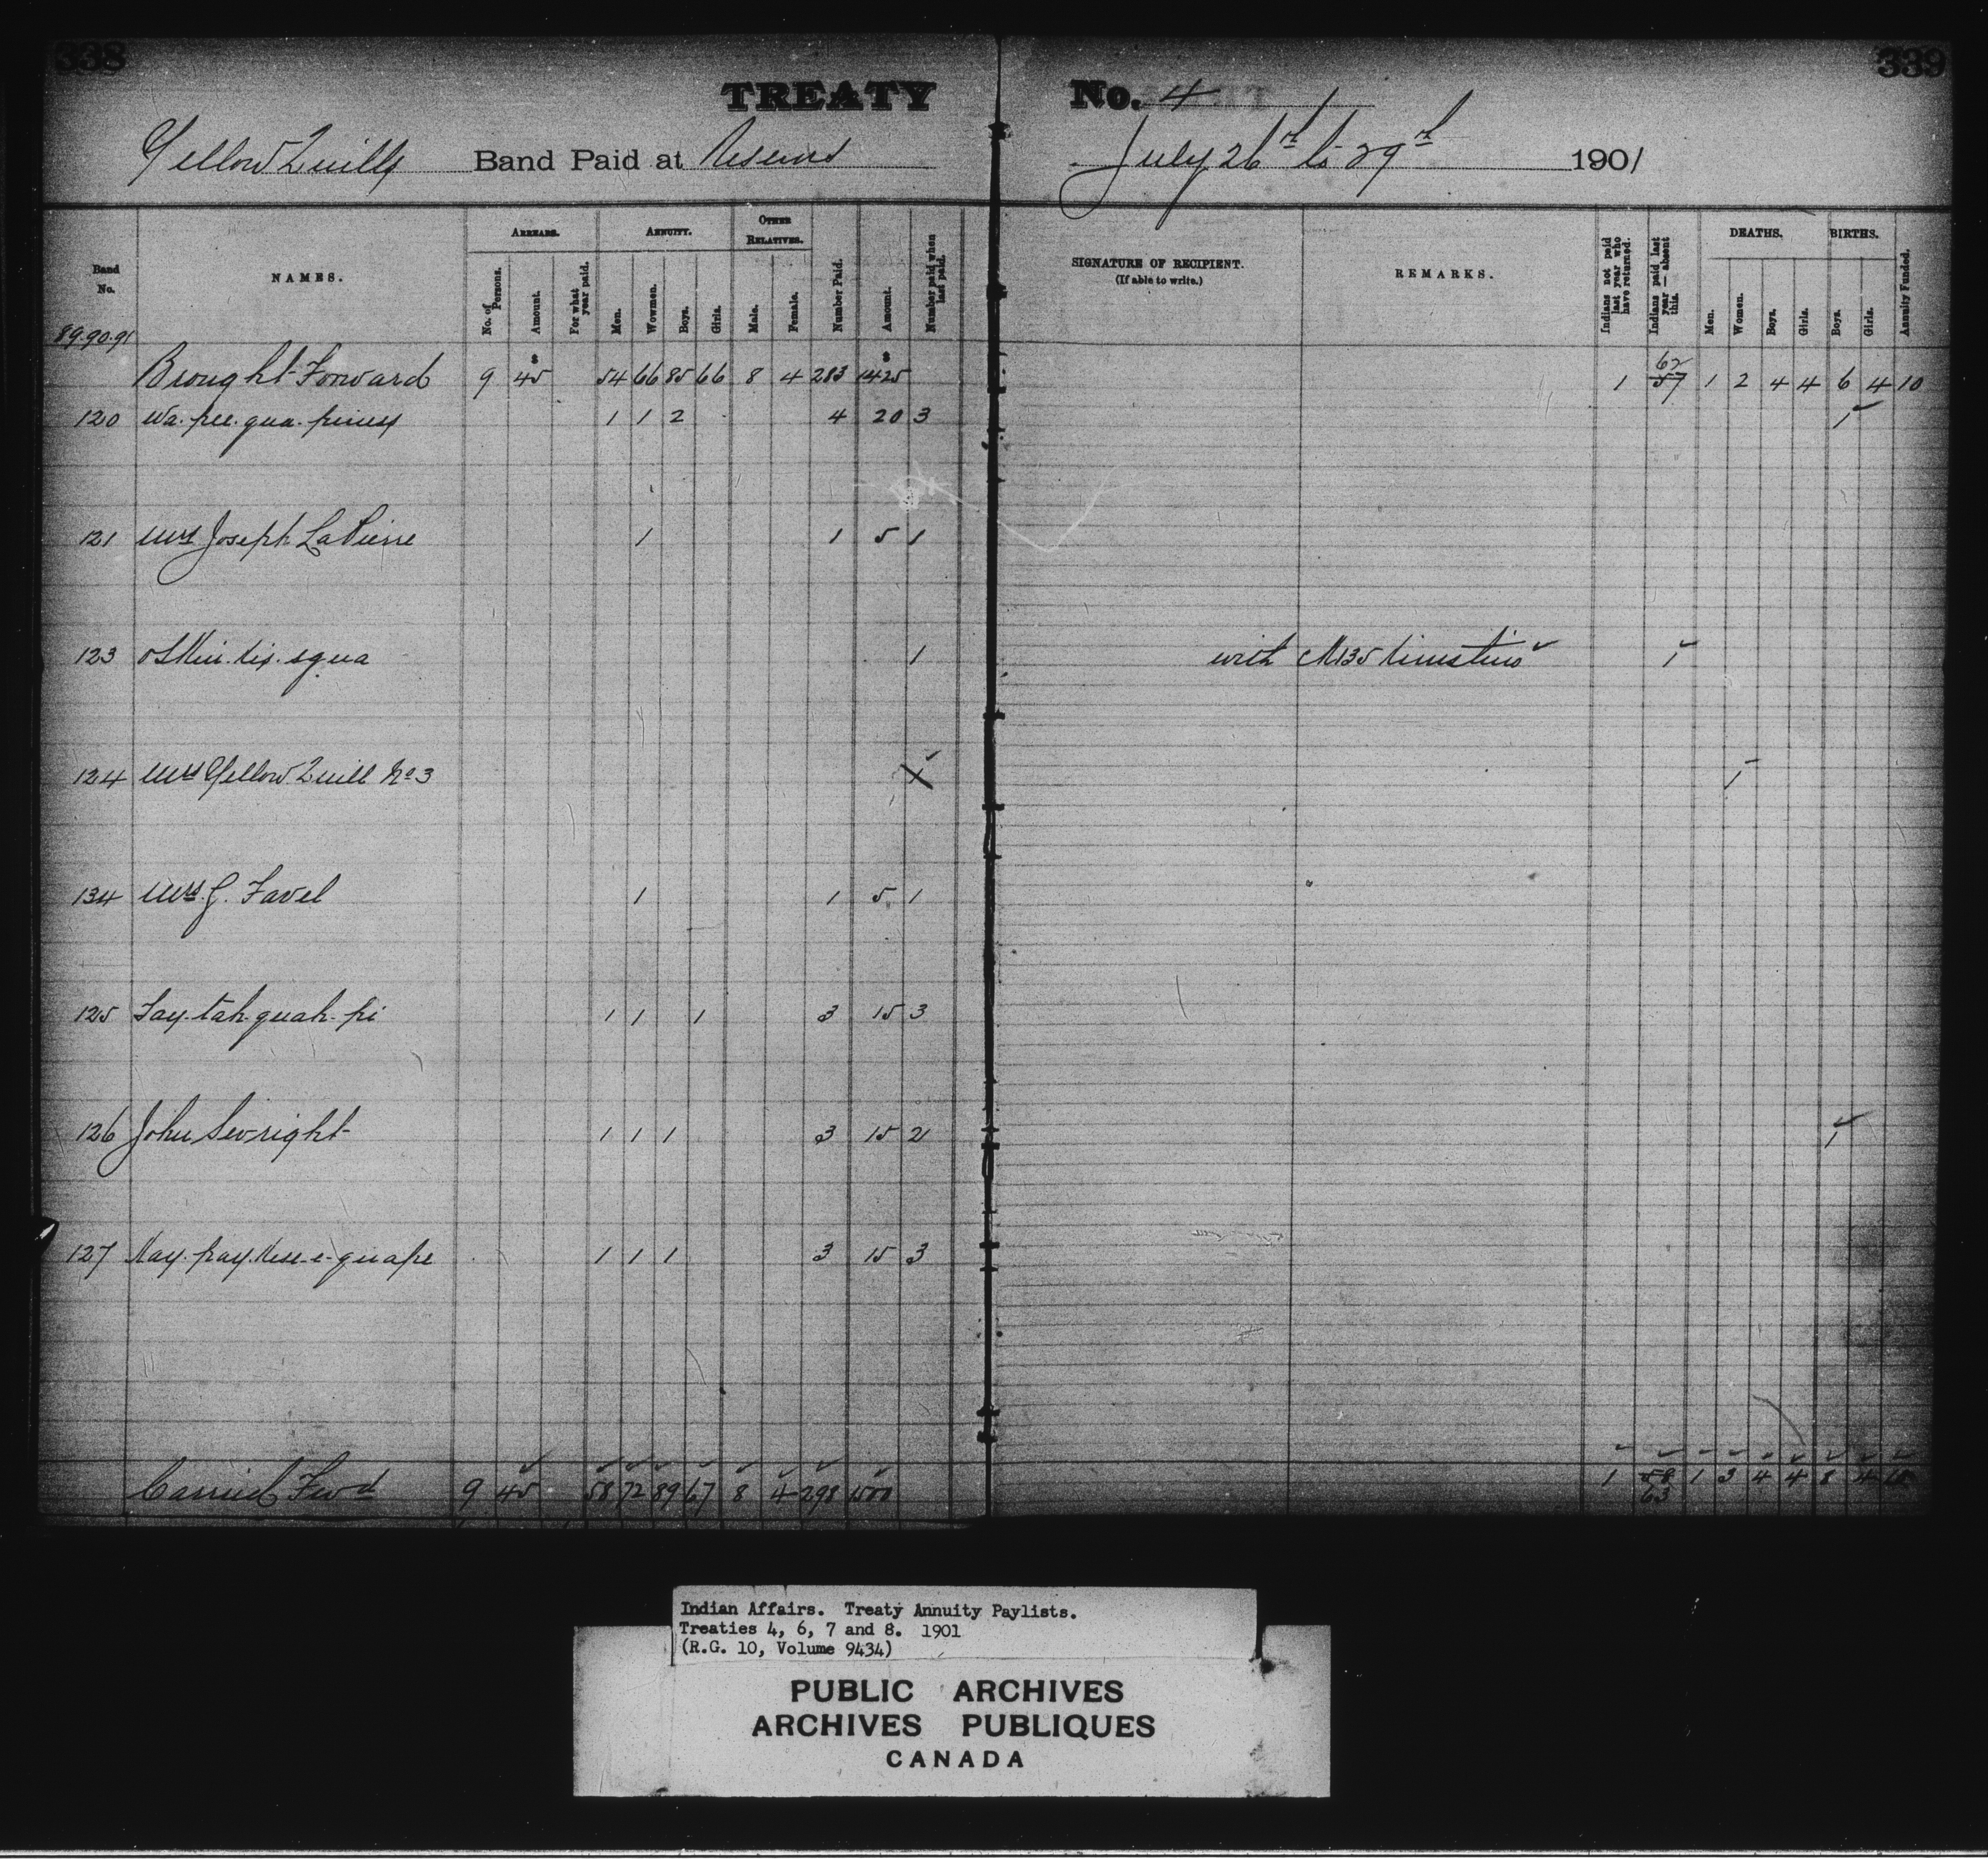 338
339
TREATY No. 4
Yellow Quills Band Paid at Reserve July 26th to 29th 1901
Band No.
NAMES.
ARREARS.
No. of Persons.
Amount.
For what year paid.
ANNUITY.
Men.
Wowmen.
Boys.
Girls.
OTHER RELATIVES.
Male.
Female.
Number Paid.
Amount.
Number paid when last paid.
SIGNATURE OF RECIPIENT.
(If able to write.)
REMARKS.
Indians not paid last year who have returned.
Indians paid last year — absent this.
DEATHS.
Men.
Women.
Boys.
Girls.
BIRTHS.
Boys.
Girls.
Annuity Funded.
89.90.91
Brought Forward 9 $45 54 66 85 66 8 4 283 $1425 1 62 57 1 2 4 4 6 4 10
120 Wa. pee. qua. 1 1 2 4 20 3 1
121 Mrs Joseph LaPierre 1 1 5 1
123 squa 1 with 1
124 Mrs Yellow Quill No 3 1 1
134 Mrs. J. Favel 1 1 5 1
125 Tay. tah. quah. pi 1 1 1 3 15 3
126 John Sevright 1 1 1 3 15 2 1
127 Kay. pay. 1 1 1 3 15 3
Carried Fwd 9 45 58 72 89 67 8 4 298 1500 1 58 63 1 3 4 4 8 4 10
Indian Affairs. Treaty Annuity Paylists.
Treaties 4, 6, 7 and 8. 1901
(R.G. 10, Volume 9434)
PUBLIC ARCHIVES
ARCHIVES PUBLIQUES
CANADA